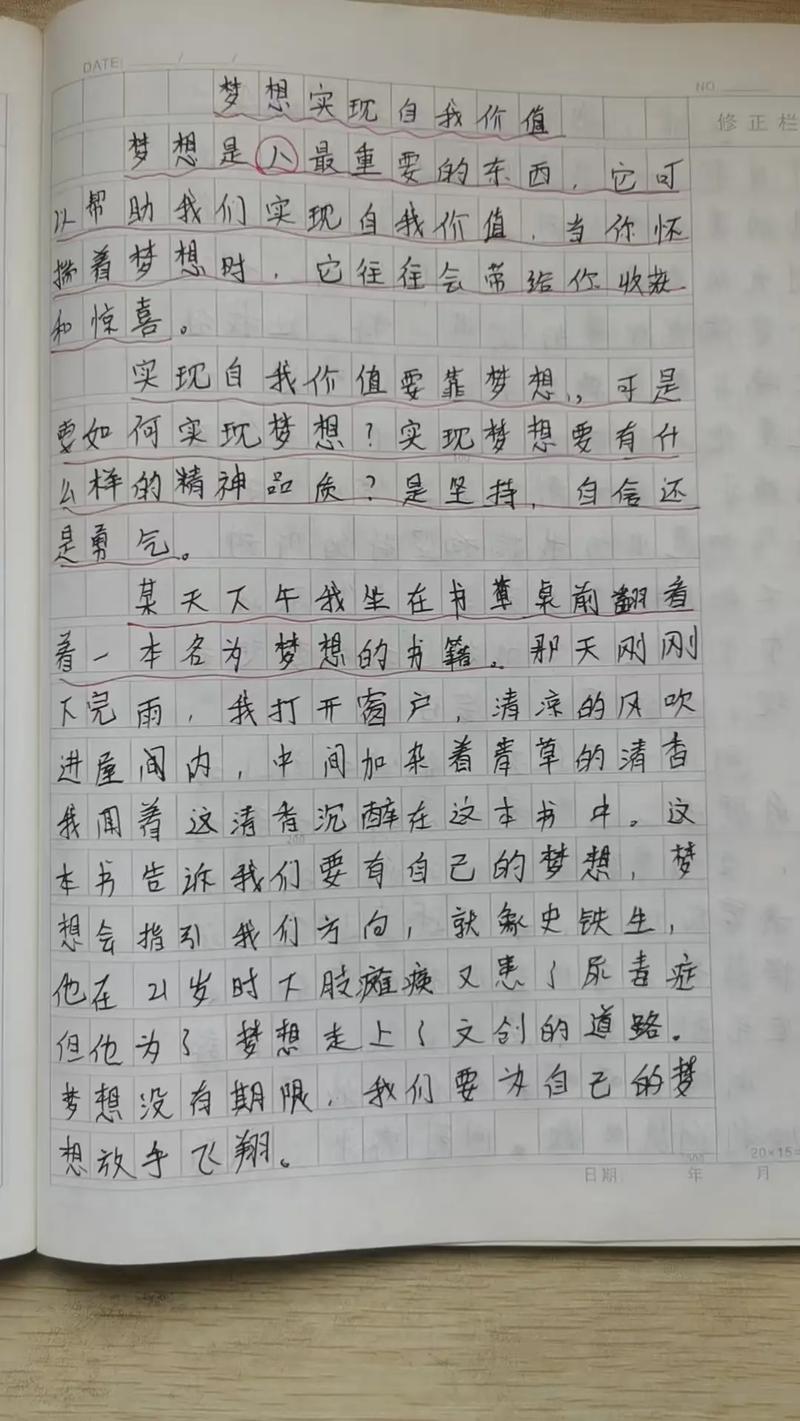 DATE / /
NO
修正栏
梦想实现自我价值
梦想是人最重要的东西，它可
以帮助我们实现自我价值，当你怀
揣着梦想时，它往往会带给你收获
和惊喜。
实现自我价值要靠梦想，，可是
要如何实现梦想？实现梦想要有什
么样的精神品质？是坚持，自信还
是勇气。
某天下午我坐在书草桌前翻看
着一本名为梦想的书籍。那天刚刚
下完雨，我打开窗户，清凉的风吹
进屋间内，中间加杂着青草的清香
我闻着这清香沉醉在这本书中。这
本书告诉我们要有自己的梦想，梦
想会指引我们方向，就象史铁生，
他在21岁时下肢瘫痪又患了尿毒症
但他为了梦想走上了文创的道路。
梦想没有期限，我们要为自己的梦
想放手飞翔。
20×15=
日期 年 月